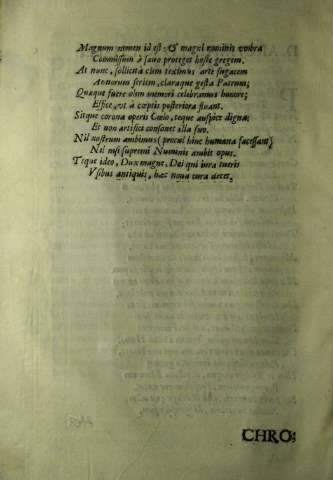 Magnum nomen id est: & magni nominis vmbra
Commissum à sæuo proteget hoste gregem.
At nunc, sollicita dum teximus arte fugacem
Annorum seriem, claraque gesta Patrum;
Quæque fuere olim memori celebramus honore;
Effice, vt à cœptis posteriora fluant.
Sitque corona operis Cœlo, teque auspice digna;
Et non artifici consonet illa suo.
Nil nostrum ambimus (procul hinc humana facessant)
Nel nisi supremi Numinis ambit opus.
Teque ideo, Dux magne, Dei qui iura tueris
Vsibus antiquis, hæc noua cura decet.
CHRO: